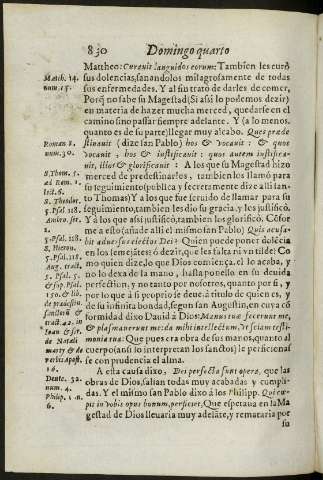 830 Domingo quarto
Mattheo: Curauit languidos eorum: Tambien les curò
sus dolencias, sanandolos milagrosamente de todas
sus enfermedades. Y al fin trató de darles de comer,
Porq̃ no sabe su Magestad (Si assi lo podemos dezir)
en materia de hazer mucha merced, quedarse en el
camino sino passar siempre adelante. Y (a lo menos.
quanto es de su parte) llegar muy al cabo. Quos præde
stinauit (dize san Pablo) hos & vocauit: & quos
vocauit, hos & iustificauit: quos autem iustifica-
uit, illos & glorificauit: A los que su Magestad hizo
merced de predestinarlos, tambien los llamó para
su seguimiento (publica y secretamente dize alli san-
to Thomas) Y a los que fue seruido de llamar para su
seguimiento, tambien les dio su gracia, y los justificó.
Y a los que assi justificó, tambien los glorificó. Cõfor
me a esto (añade alli el mismo san Pablo) Quis accusa-
bit aduersus electos Dei? Quien puede poner dolẽcia
en los semejãtes: ó dezir, que les falta ni vn tilde? Co
mo quien dize, lo que Dios comiẽça, el lo acaba, y
no lo dexa de la mano, hasta ponello en su deuida
perfection, y no tanto por nosotros, quanto por si, y
por lo que à si proprio deue: á titulo de quien es, y
de su infinita bondad, segun san Augustin, en cuya cõ
formidad dixo Dauid à Dios: Manus tuæ fecerunt me,
& plasmauerunt me: da mihi intellectum, vt sciam testi-
monia tua: Que pues era obra de sus manos, quanto al
cuerpo (assi lo interpretan los sanctos) le perficionas
se con prudencia el alma.
A esta causa dixo, Dei perfecta sunt opera, que las
obras de Dios, salian todas muy acabadas y cumpli-
das. Y el mismo san Pablo dixo á los Philipp. Qui cœ-
pit in vobis opus bonum, perficiet, Que esperaua en la Ma
gestad de Dios lleuaria muy adelãte, y remataria por
su
Matth. 14.
num. 15.
Roman 8.
num. 30.
S. Thom. 5.
ad Rom. 1.
lect. 6.
S. Theodor.
5. Psal. 118.
Ambro. ser.
5. Psal. 118.
S. Hieron.
5. Psal. 118.
Aug. tract.
5. Psal.
150. & lib.
de prædestin.
sanctorũ &
tract. 42. in
Ioan & ser.
de Natali
martyrũ de
verbis Apost.
16.
Deute. 32.
num. 4.
Philip. 1. n.
6.